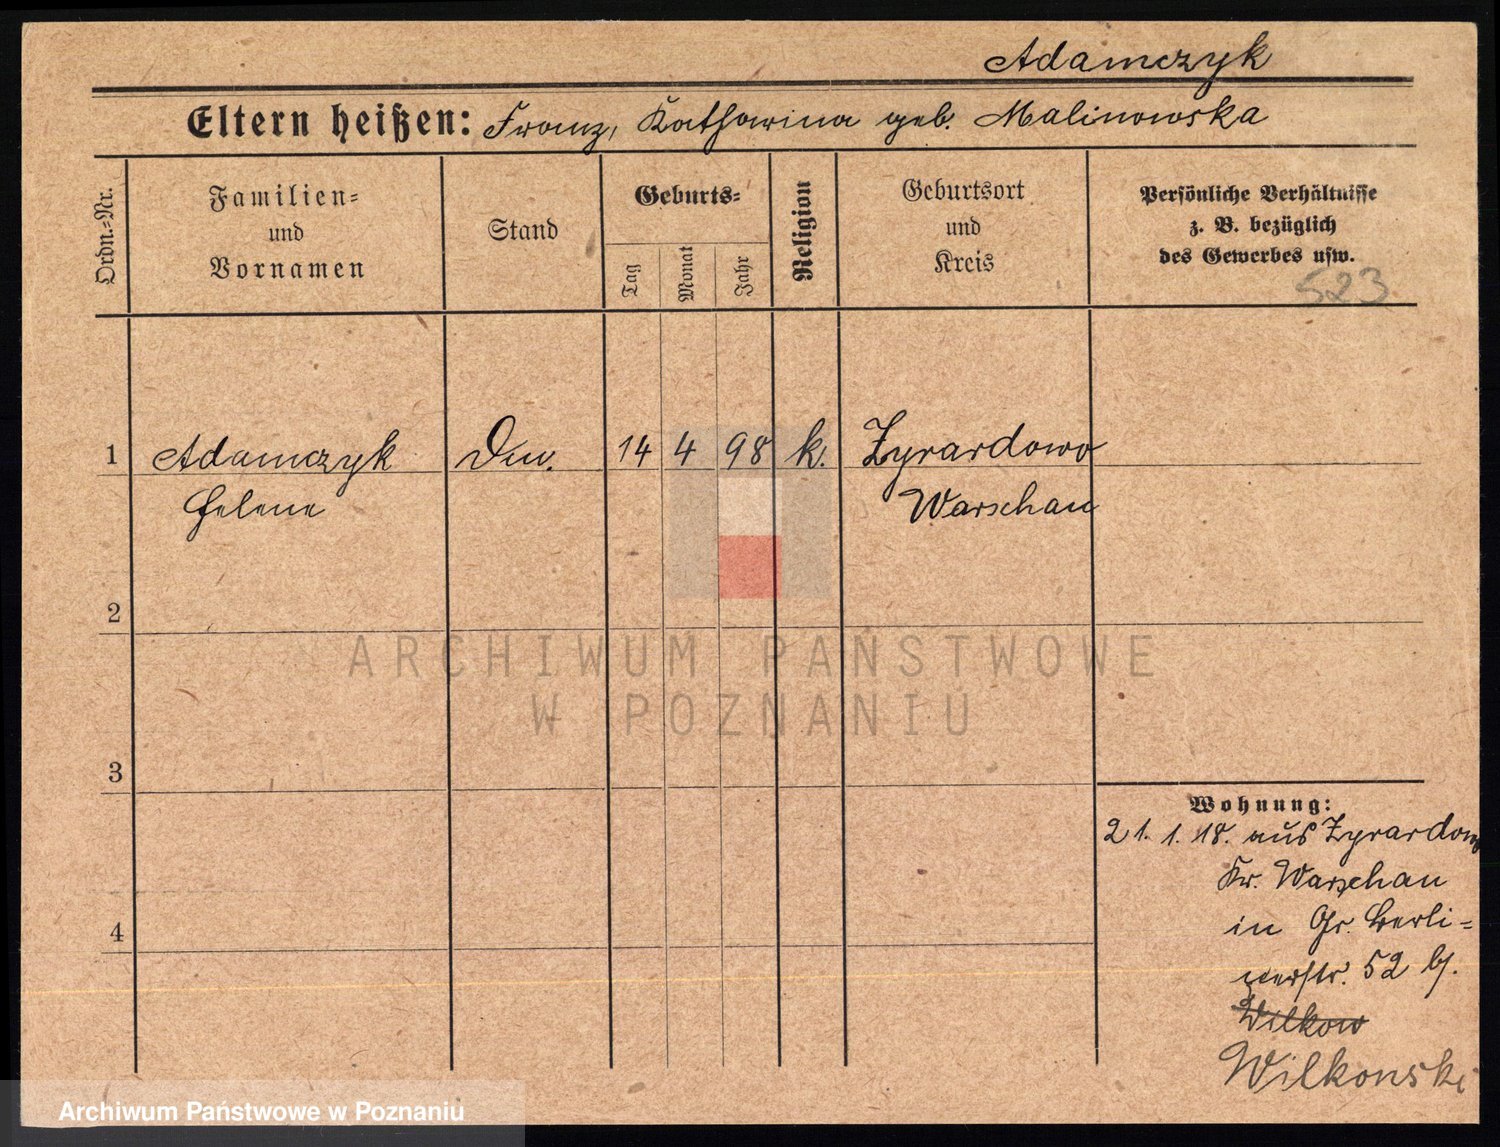 Adamczyk
Eltern heißen: Franz, Katharina geb. Malinowska
Ordn.-Nr.
Familien-
und
Vornamen
Stand
Geburts-
Tag
Monat
Jahr
Religion
Geburtsort
und
Kreis
Persönliche Verhältnisse
z. B. bezüglich
des Gewerbes usw.
523
1 Adamczyk 14 4 98 k. Zyrardowo
Helene Warschau
2
ARCHIWUM PAŃSTWOWE
W POZNANIU
3
Wohnung:
21. 1. 18. aus Zyrardow
Kr. Warschau
4
in Gr. Berli-
nerstr. 52 b/.
Wilkow
Wilkonski
Archiwum Państwowe w Poznaniu